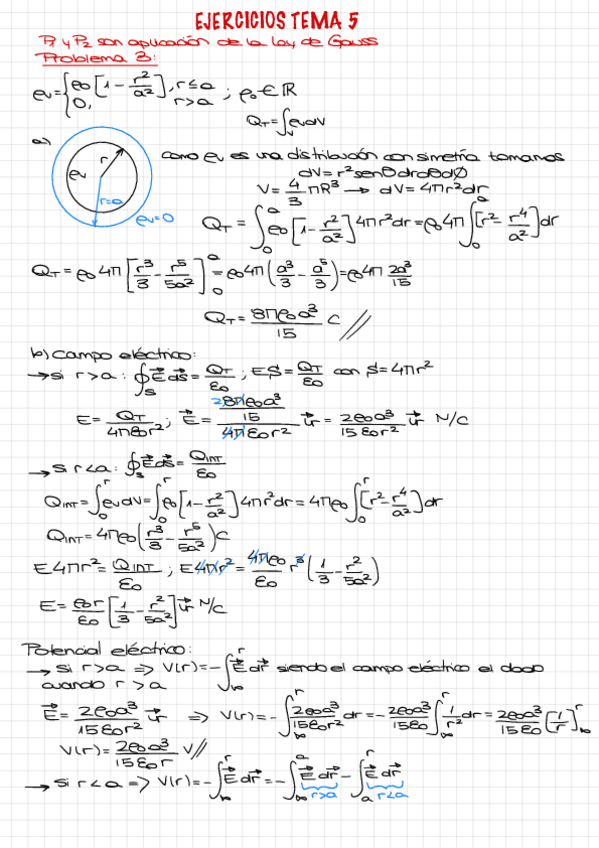 EJERCICIOS TEMA 5
P1 y P2 son aplicación de la Ley de Gauss
Problema 3:
ρv = { ρ0 [1 - r²/a²], r ≤ a ; ρ0 ∈ ℝ
0, r > a
QT = ∫v ρv dV
a)
ρv r r=a ρv=0
como ρv es una distribución con simetría tomamos
dV = r² senθ dr dθ dØ
V = 4/3 π R³ → dV = 4πr² dr
QT = ∫₀ᵃ ρ0 [1 - r²/a²] 4πr² dr = ρ0 4π ∫₀ᵃ [r² - r⁴/a²] dr
QT = ρ0 4π [r³/3 - r⁵/5a²]₀ᵃ = ρ0 4π (a³/3 - a⁵/3) = ρ0 4π 2a³/15
QT = 8πρ0a³/15 C //
b) Campo eléctrico:
→ si r > a : ∮s E⃗ ds⃗ = QT/ε0 ; E S = QT/ε0 con S = 4πr²
E = QT/4πε0r² ; E⃗ = (8πρ0a³/15)/(4πε0r²) u⃗r = 2ρ0a³/15ε0r² u⃗r N/C
→ si r < a : ∮s E⃗ ds⃗ = QINT/ε0
QINT = ∫₀ʳ ρv dV = ∫₀ʳ ρ0 [1 - r²/a²] 4πr² dr = 4πρ0 ∫₀ʳ [r² - r⁴/a²] dr
QINT = 4πρ0 (r³/3 - r⁵/5a²) C
E 4πr² = QINT/ε0 ; E 4πr² = 4πρ0/ε0 r³ (1/3 - r²/5a²)
E = ρ0r/ε0 [1/3 - r²/5a²] u⃗r N/C
Potencial eléctrico:
→ si r > a ⇒ V(r) = -∫∞ʳ E⃗ dr⃗ siendo el campo eléctrico el dado
cuando r > a
E⃗ = 2ρ0a³/15ε0r² u⃗r ⇒ V(r) = -∫∞ʳ 2ρ0a³/15ε0r² dr = -2ρ0a³/15ε0 ∫∞ʳ 1/r² dr = 2ρ0a³/15ε0 [1/r]∞ʳ
V(r) = 2ρ0a³/15ε0r V //
→ si r < a ⇒ V(r) = -∫∞ʳ E⃗ dr⃗ = -∫∞ᵃ E⃗ dr⃗ - ∫ₐʳ E⃗ dr⃗
r>a r<a